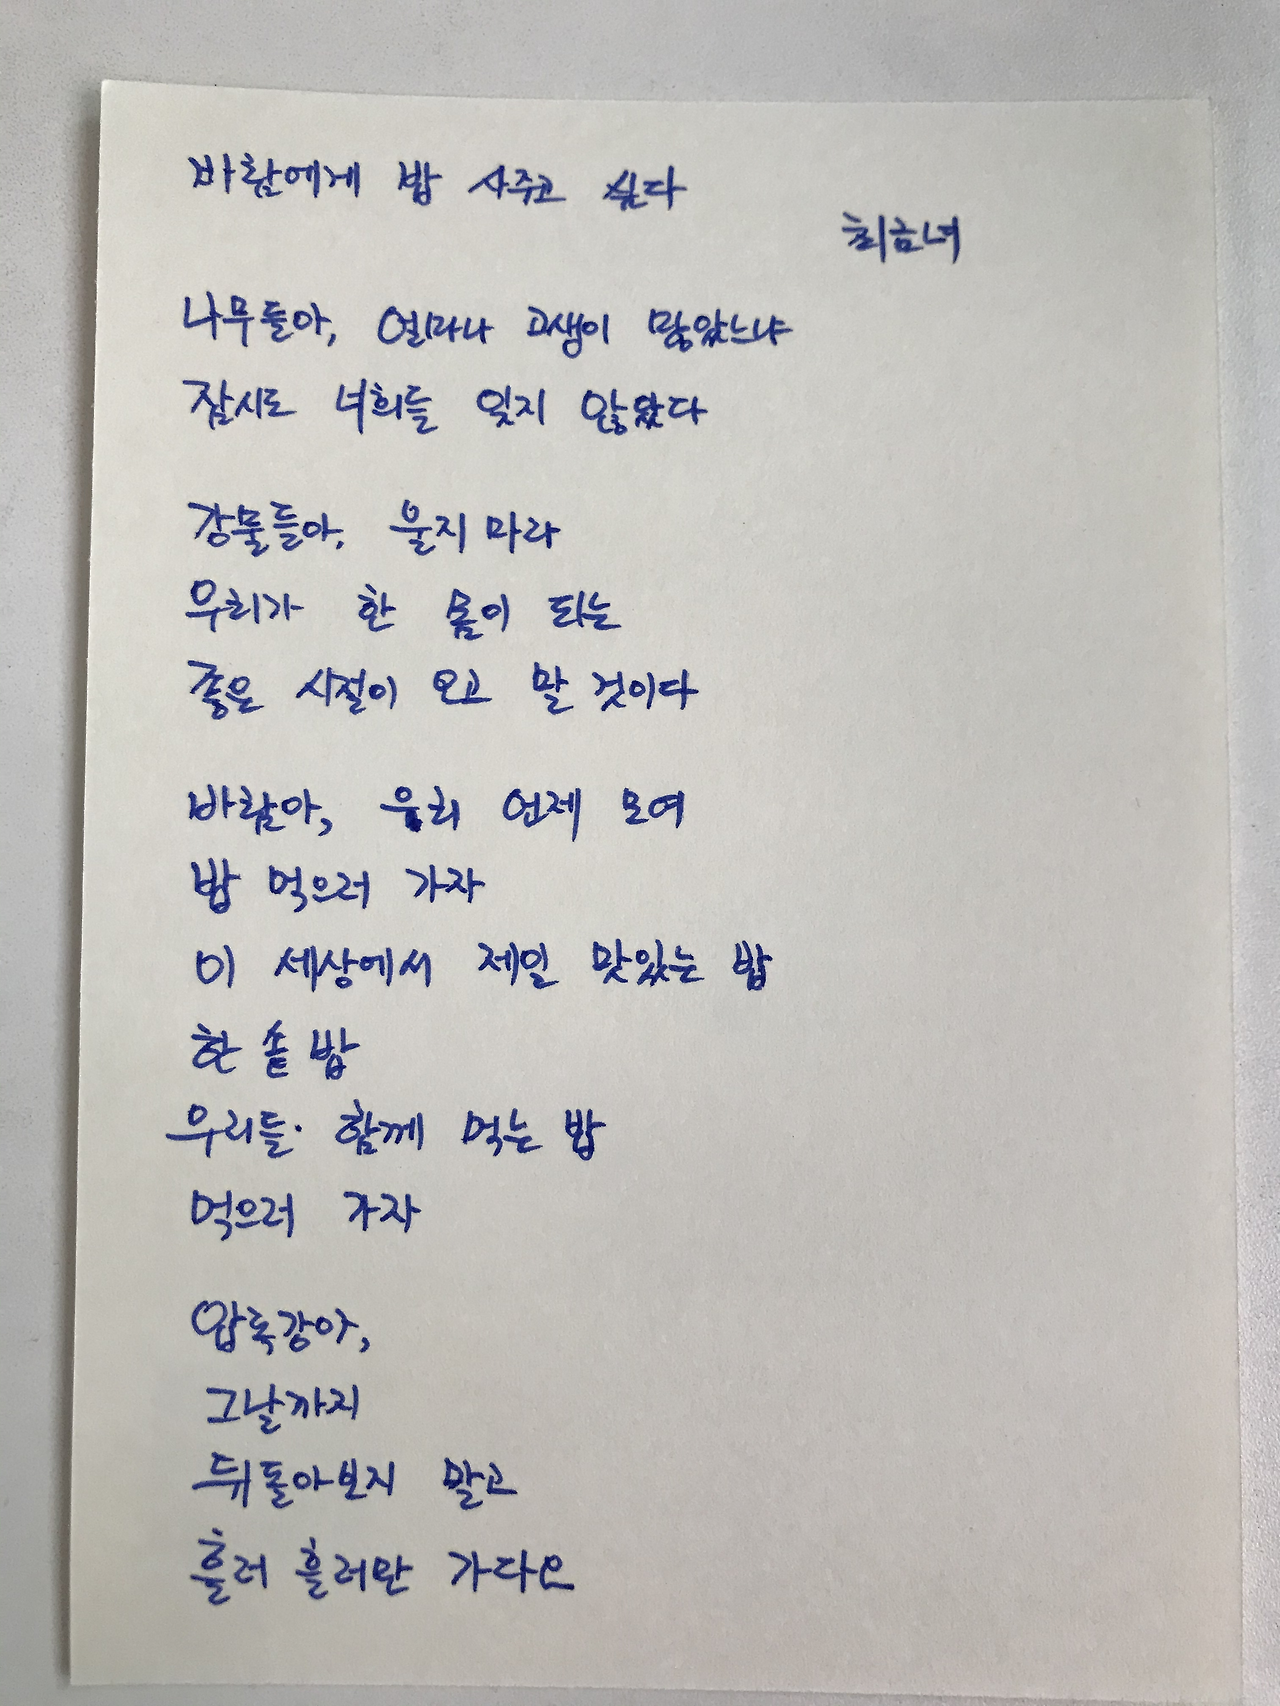 바람에게 밥 사주고 싶다
최금녀
나무들아, 얼마나 고생이 많았느냐
잠시도 너희들 잊지 않았다
강물들아, 울지 마라
우리가 한 몸이 되는
좋은 시절이 오고 말 것이다
바람아, 우리 언제 모여
밥 먹으러 가자
이 세상에서 제일 맛있는 밥
한 솥 밥
우리들. 함께 먹는 밥
먹으러 가자
압록강아,
그날까지
뒤돌아보지 말고
흘러 흘러만 가다오